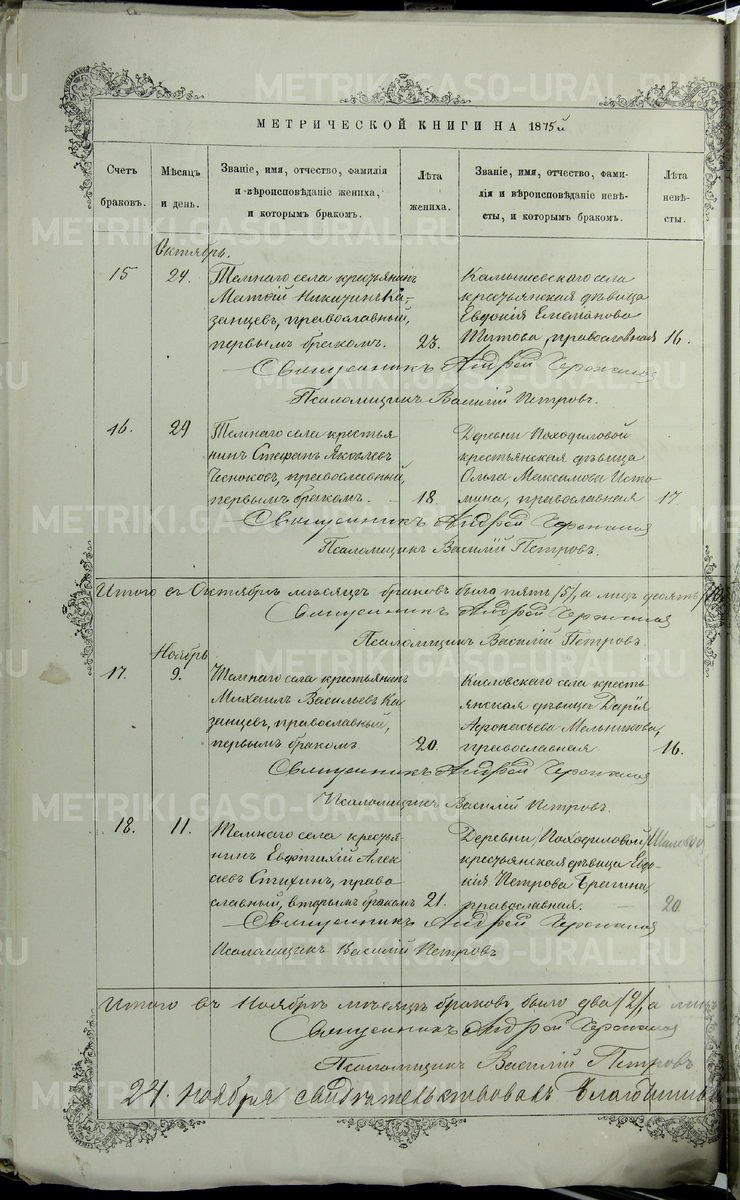 МЕТРИЧЕСКОЙ КНИГИ НА 1875й
Счетъ браковъ.
Мѣсяцъ и день.
Званіе, имя, отчество, фамилія
и вѣроисповѣданіе жениха,
и которымъ бракомъ.
Лѣта жениха.
Званіе, имя, отчество, фами-
лія и вѣроисповѣданіе невѣ-
сты, и которымъ бракомъ.
Лѣта невѣ-
сты.
Октябрь.
15 24.
села крестьянинъ
Ка-
занцевъ, православный,
первымъ бракомъ. 23.
села
крестьянская дѣвица
Евдокія
Титова, православная 16.
Священникъ Андрей
Псаломщикъ Василій Петровъ.
16. 29
села крестья
нинъ Стефанъ Яковлевъ
Чесноковъ, православный,
первымъ бракомъ. 18
Деревни Походиловой
крестьянская дѣвица
Ольга Максимова Исто
мина, православная 17.
Священникъ Андрей
Псаломщикъ Василій Петровъ.
Итого въ Октябрѣ мѣсяцѣ браковъ было пять /5/, а лицъ десять /10
Священникъ Андрей
Псаломщикъ Василій Петровъ
Ноябрь
17. 9.
села крестьянинъ
Михаилъ Васильевъ Ка
занцевъ, православный,
первымъ бракомъ 20.
Кисловскаго села кресть
янская дѣвица Дарія
Мельникова,
православная 16.
Священникъ Андрей
Псаломщикъ Василій Петровъ.
18. 11.
села крестья-
нинъ Евфтихій Алек
сѣевъ Стихинъ, право
славный, вторымъ бракомъ 21.
Деревни Походиловой
крестьянская дѣвица Евдо-
кія Петрова Брагина,
православная. 20.
Священникъ Андрей
Псаломщикъ Василій Петровъ
Итого въ Ноябрѣ мѣсяцѣ браковъ было два /2/, а лицъ
Священникъ Андрей
Псаломщикъ Василій Петровъ
ноября свидѣтельствовалъ
METRIKI.GASO-URAL.RU